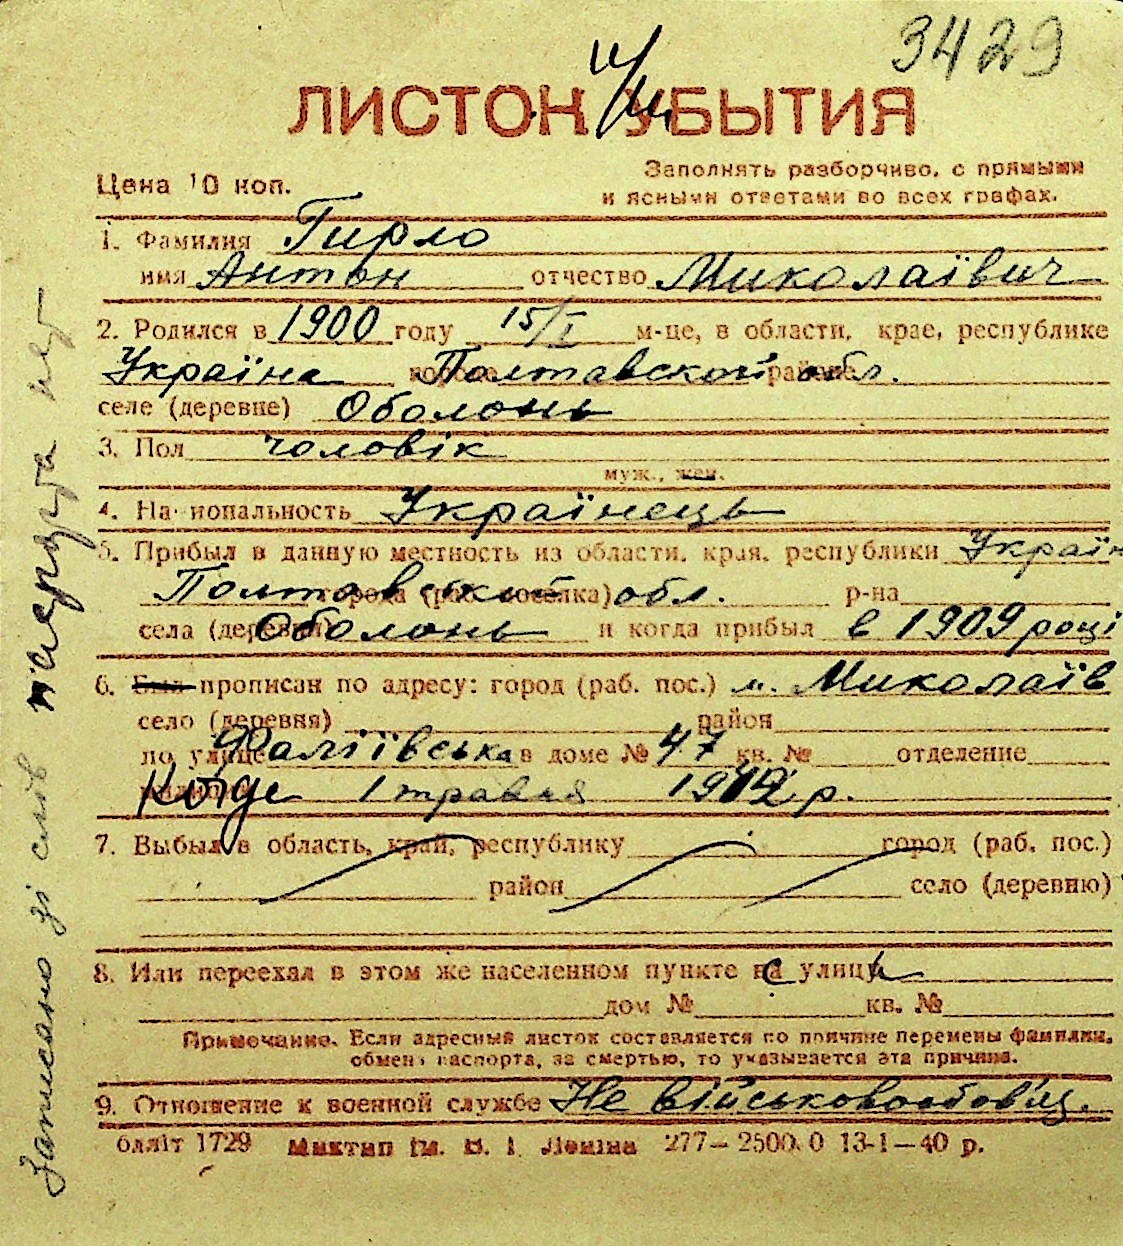 3429
ЛИСТОК УБЫТИЯ
Цена 10 коп.
Заполнять разборчиво, с прямыми
и ясными ответами во всех графах.
1. Фамилия Гирло
имя Антон отчество Миколаївич
2. Родился в 1900 году 15/I м-це, в области, крае, республике
Україна городе Полтавской районе обл.
селе (деревне) Оболонь
3. Пол чоловік
муж., жен.
4. Национальность Українець
5. Прибыл в данную местность из области, края, республики Україн
Полтавський города (раб. поселка) обл. р-на
села (деревни) Оболонь и когда прибыл в 1909 році
6. Был прописан по адресу: город (раб. пос.) м. Миколаїв
село (деревня) район
по улице Фаліївська в доме № 47 кв. № отделение
1 травня 1942 р.
7. Выбыл в область, край, республику город (раб. пос.)
район село (деревню)
8. Или переехал в этом же населенном пункте на улицу
дом № кв. №
Примечание. Если адресный листок составляется по причине перемены фамилии,
обмена паспорта, за смертью, то указывается эта причина.
9. Отношение к военной службе Не військовообов'яз.
блліт 1729 Миктип ім. В. І. Леніна 277—2500.0 13-1—40 р.
Записано зі слів